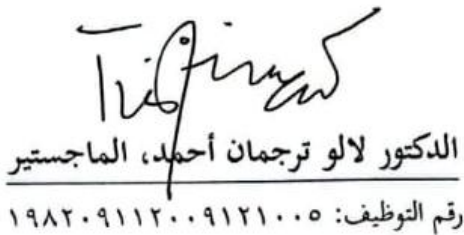 الدكتور لالو ترجمان أحمد، الماجستير
رقم التوظيف: ١٩٨٢٠٩١١٢٠٠٩١٢١٠٠٥